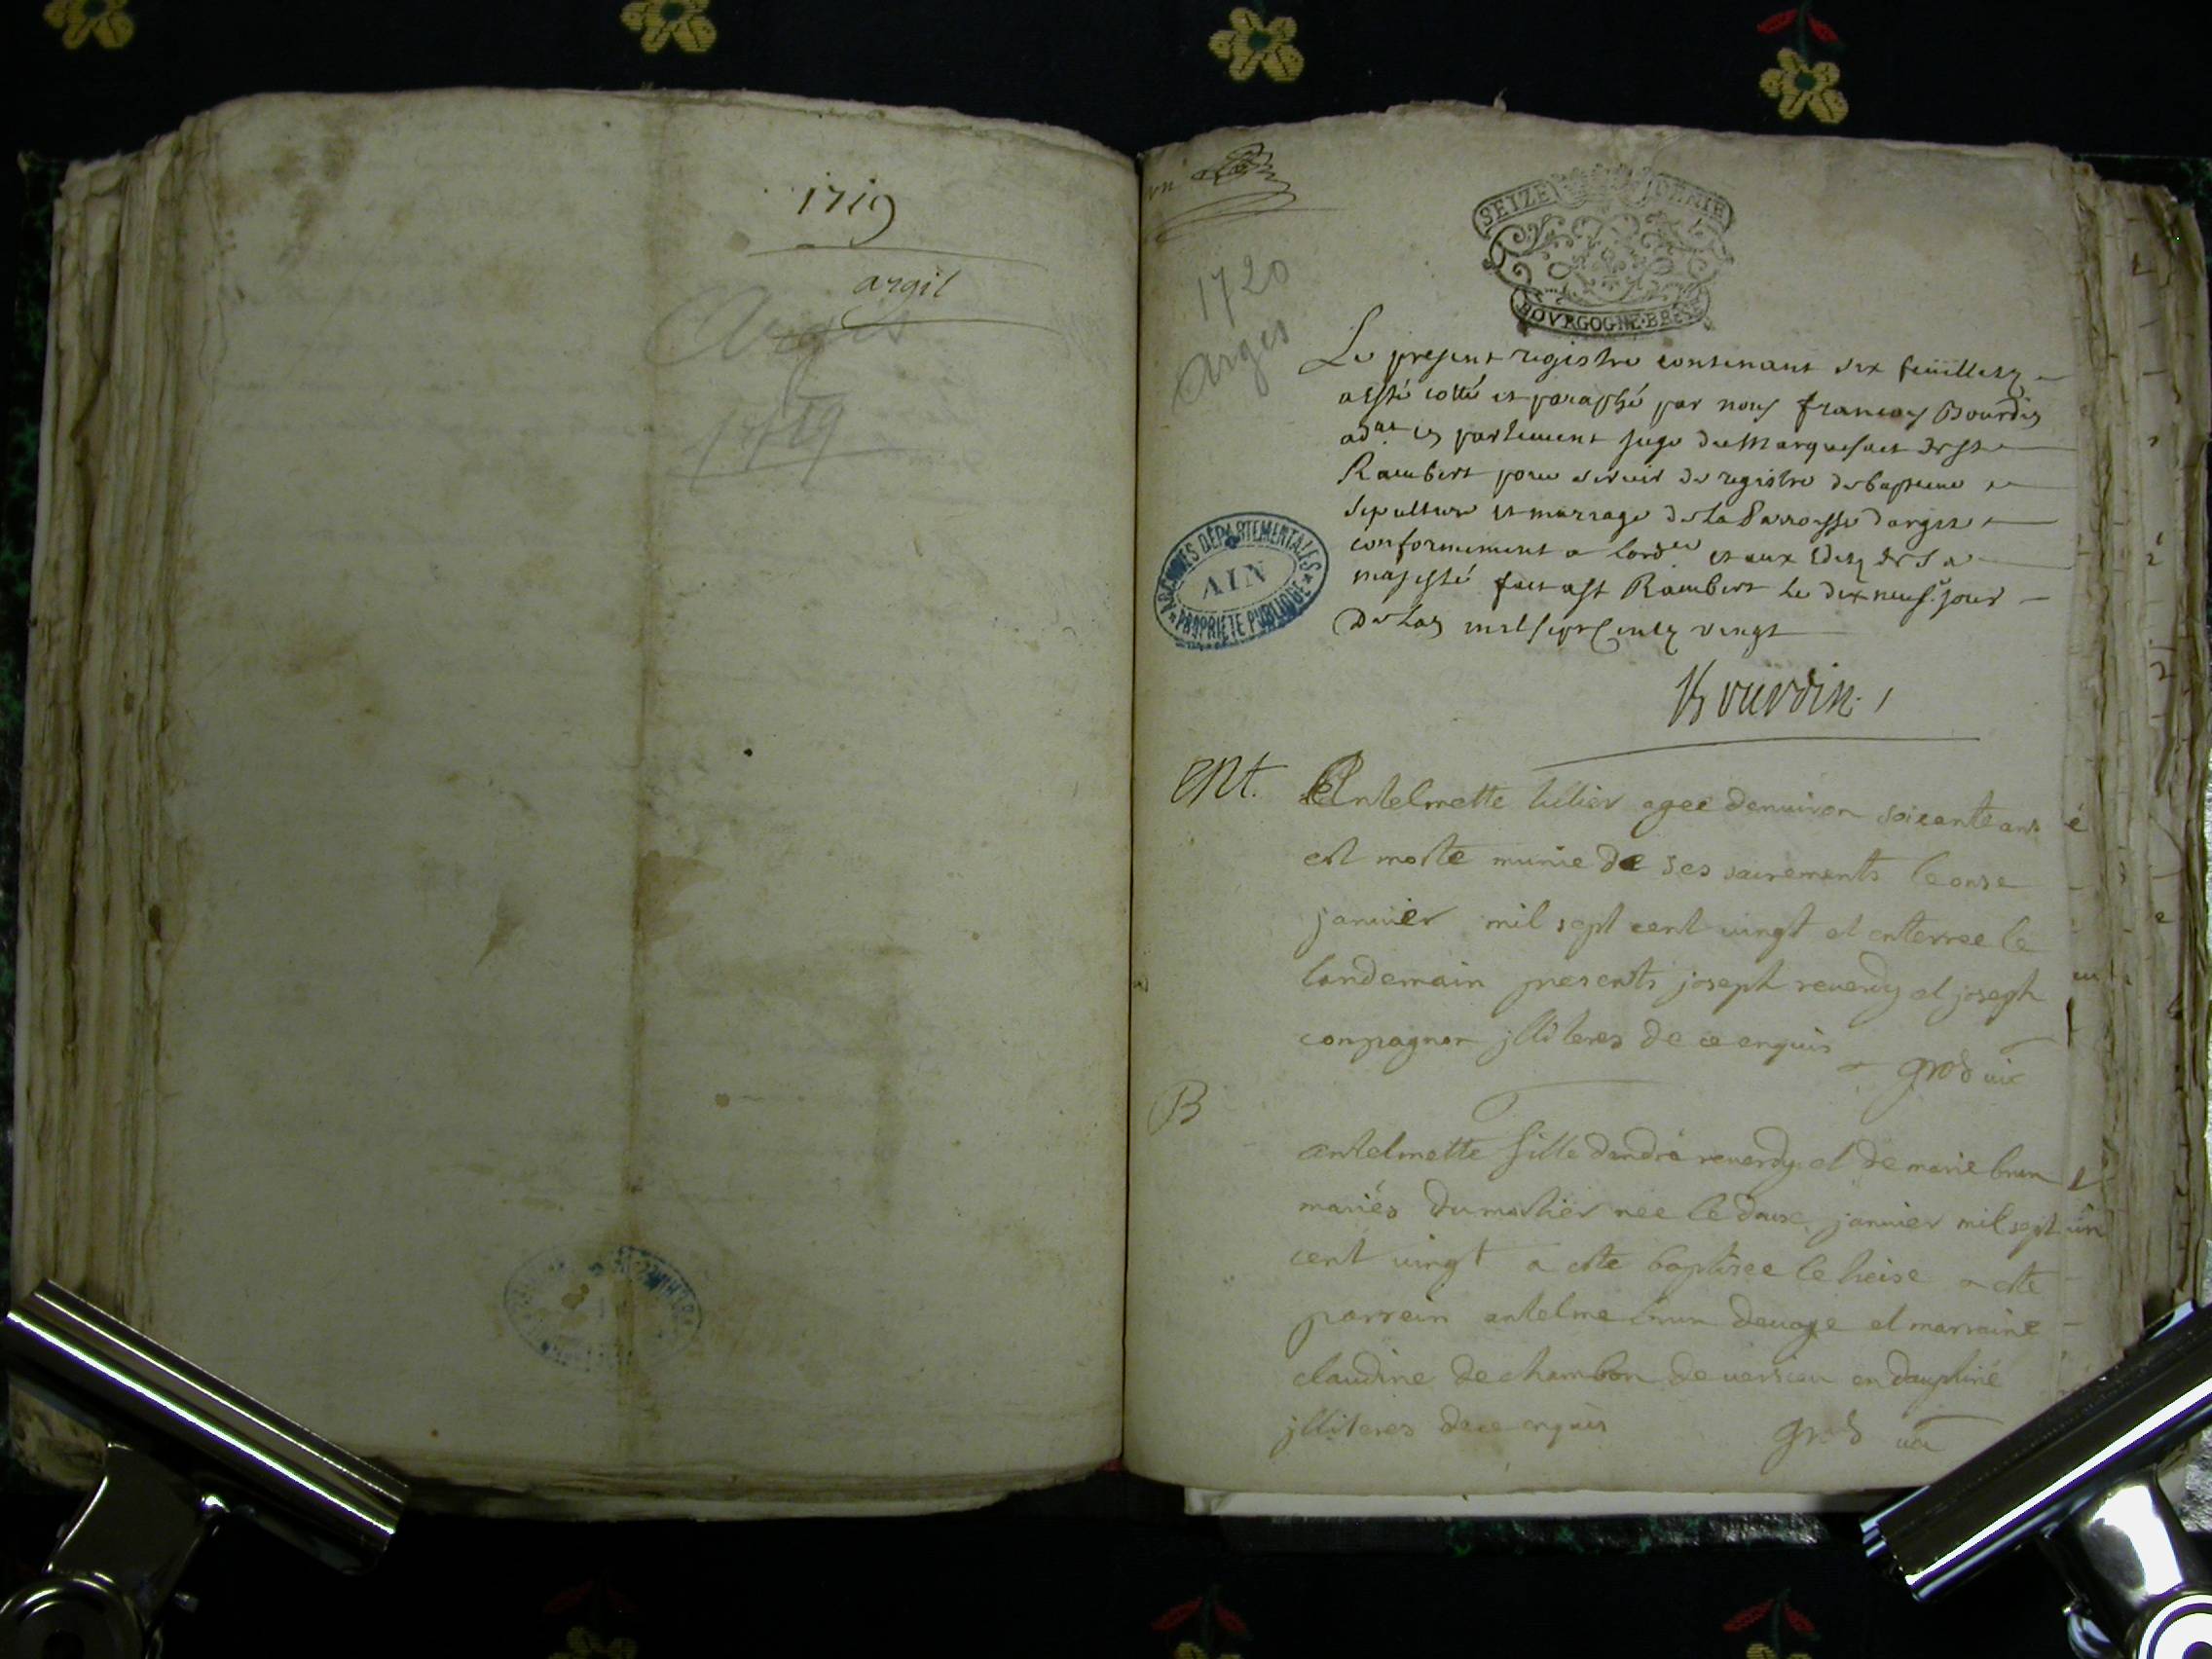 1719
argil
Argis
1719
un
1720
Argis
SEIZE DENIE
BOVRGOGNE·BRESSE
Le present registre contenant six feuilletz
a esté cotté et paraphé par nous francois Bourdin
adat en parlement juge du Marquisat de St
Rambert pour servir de registre de baptesme
sepulture et mariage de la Parroisse dargis
conformement a lordce et aux Editz de sa
majesté fait a St Rambert le dix neuf jour
De mil sept centz vingt
Bourdin
ARCHIVES DÉPARTEMENTALES
AIN
PROPRIÉTÉ PUBLIQUE
ent.
Antelmette agee denuiron soixante ans
est morte munie de ses sacrements le onse
januier mil sept cent uingt et enterree le
landemain presents joseph reuerdy et joseph
compagnon jlliteres de ce enquis
gros uic
B
antelmette fille dandré reuerdy et de marie brun
mariés du nee le douse januier mil sept
cent uingt a este baptisee le treise a este
parrain antelme brun et marraine
claudine de chambon de uersieu en dauphiné
jlliteres de ce enquis
gros uic